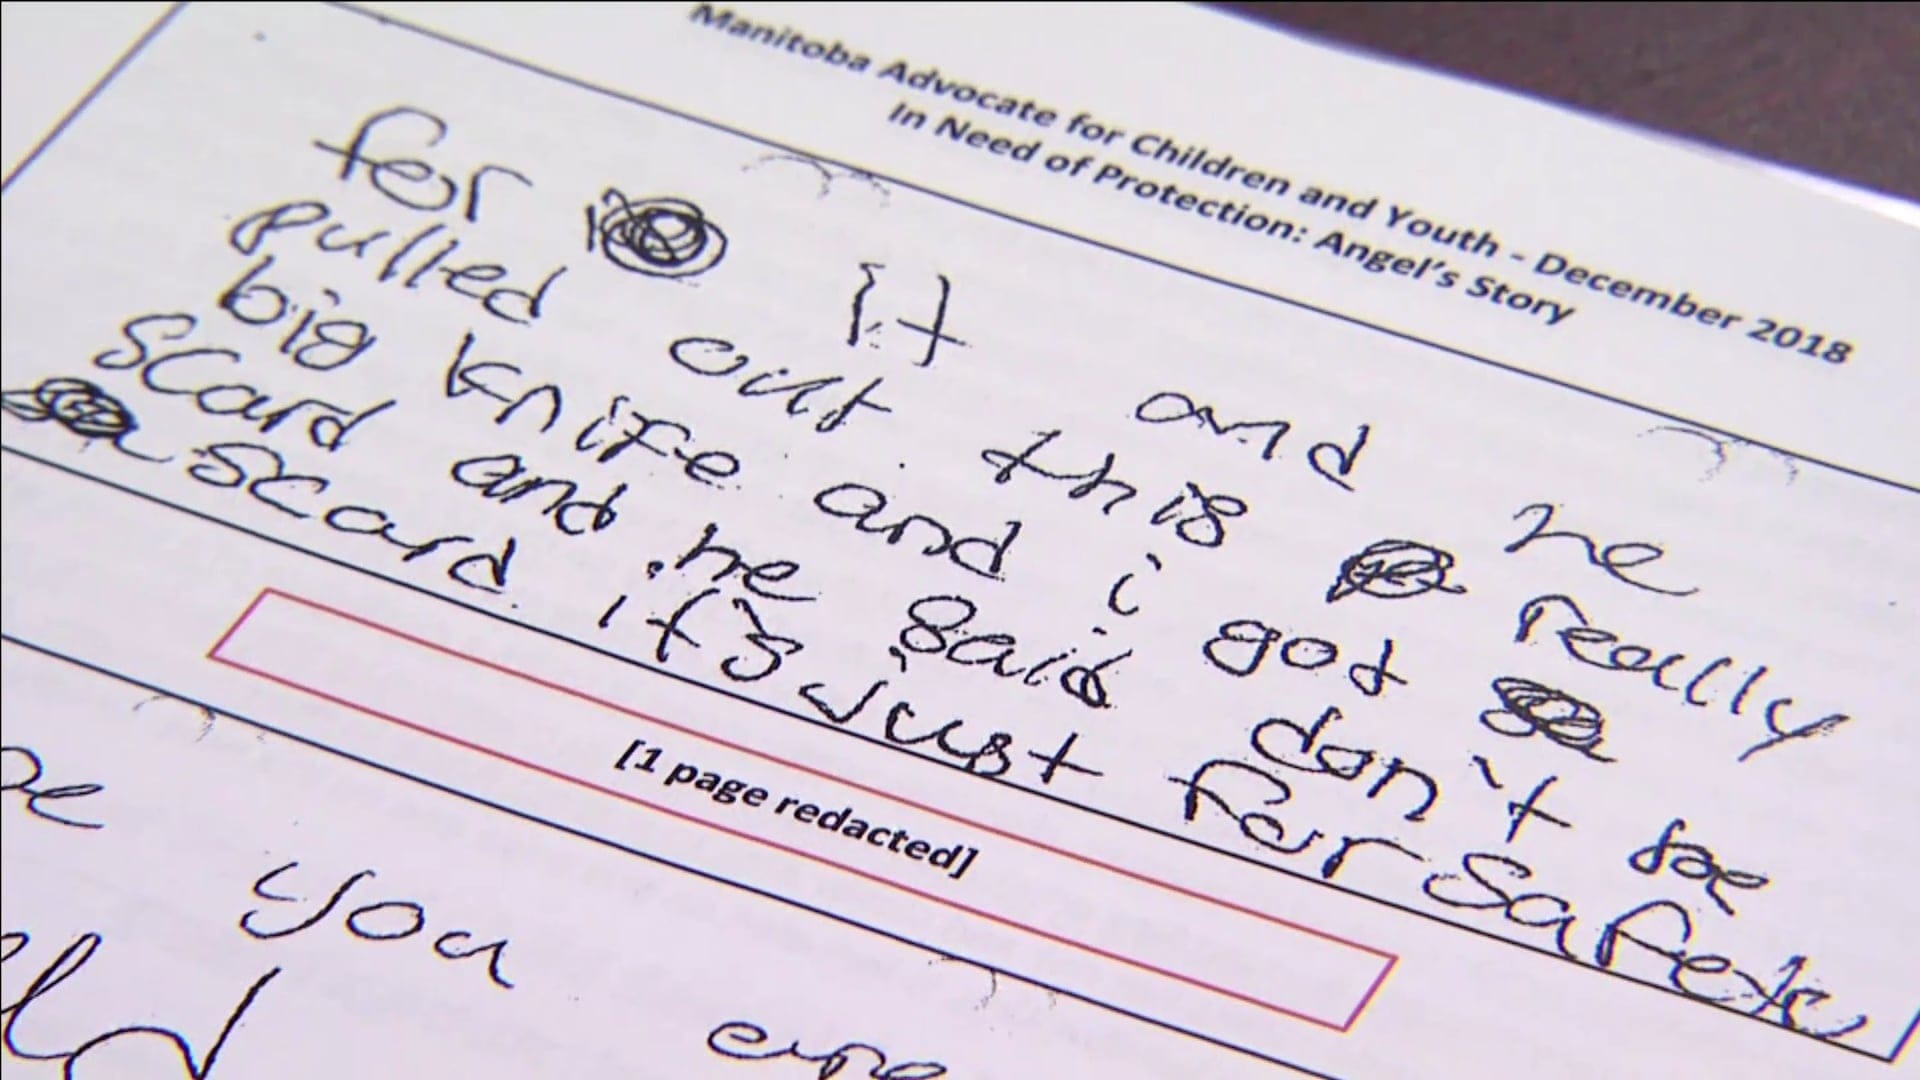 Manitoba Advocate for Children and Youth - December 2018
In Need of Protection: Angel's Story
for it and he
pulled out this really
big knife and i got
scard and he said don't be
scard it's just for safety
[1 page redacted]
you are